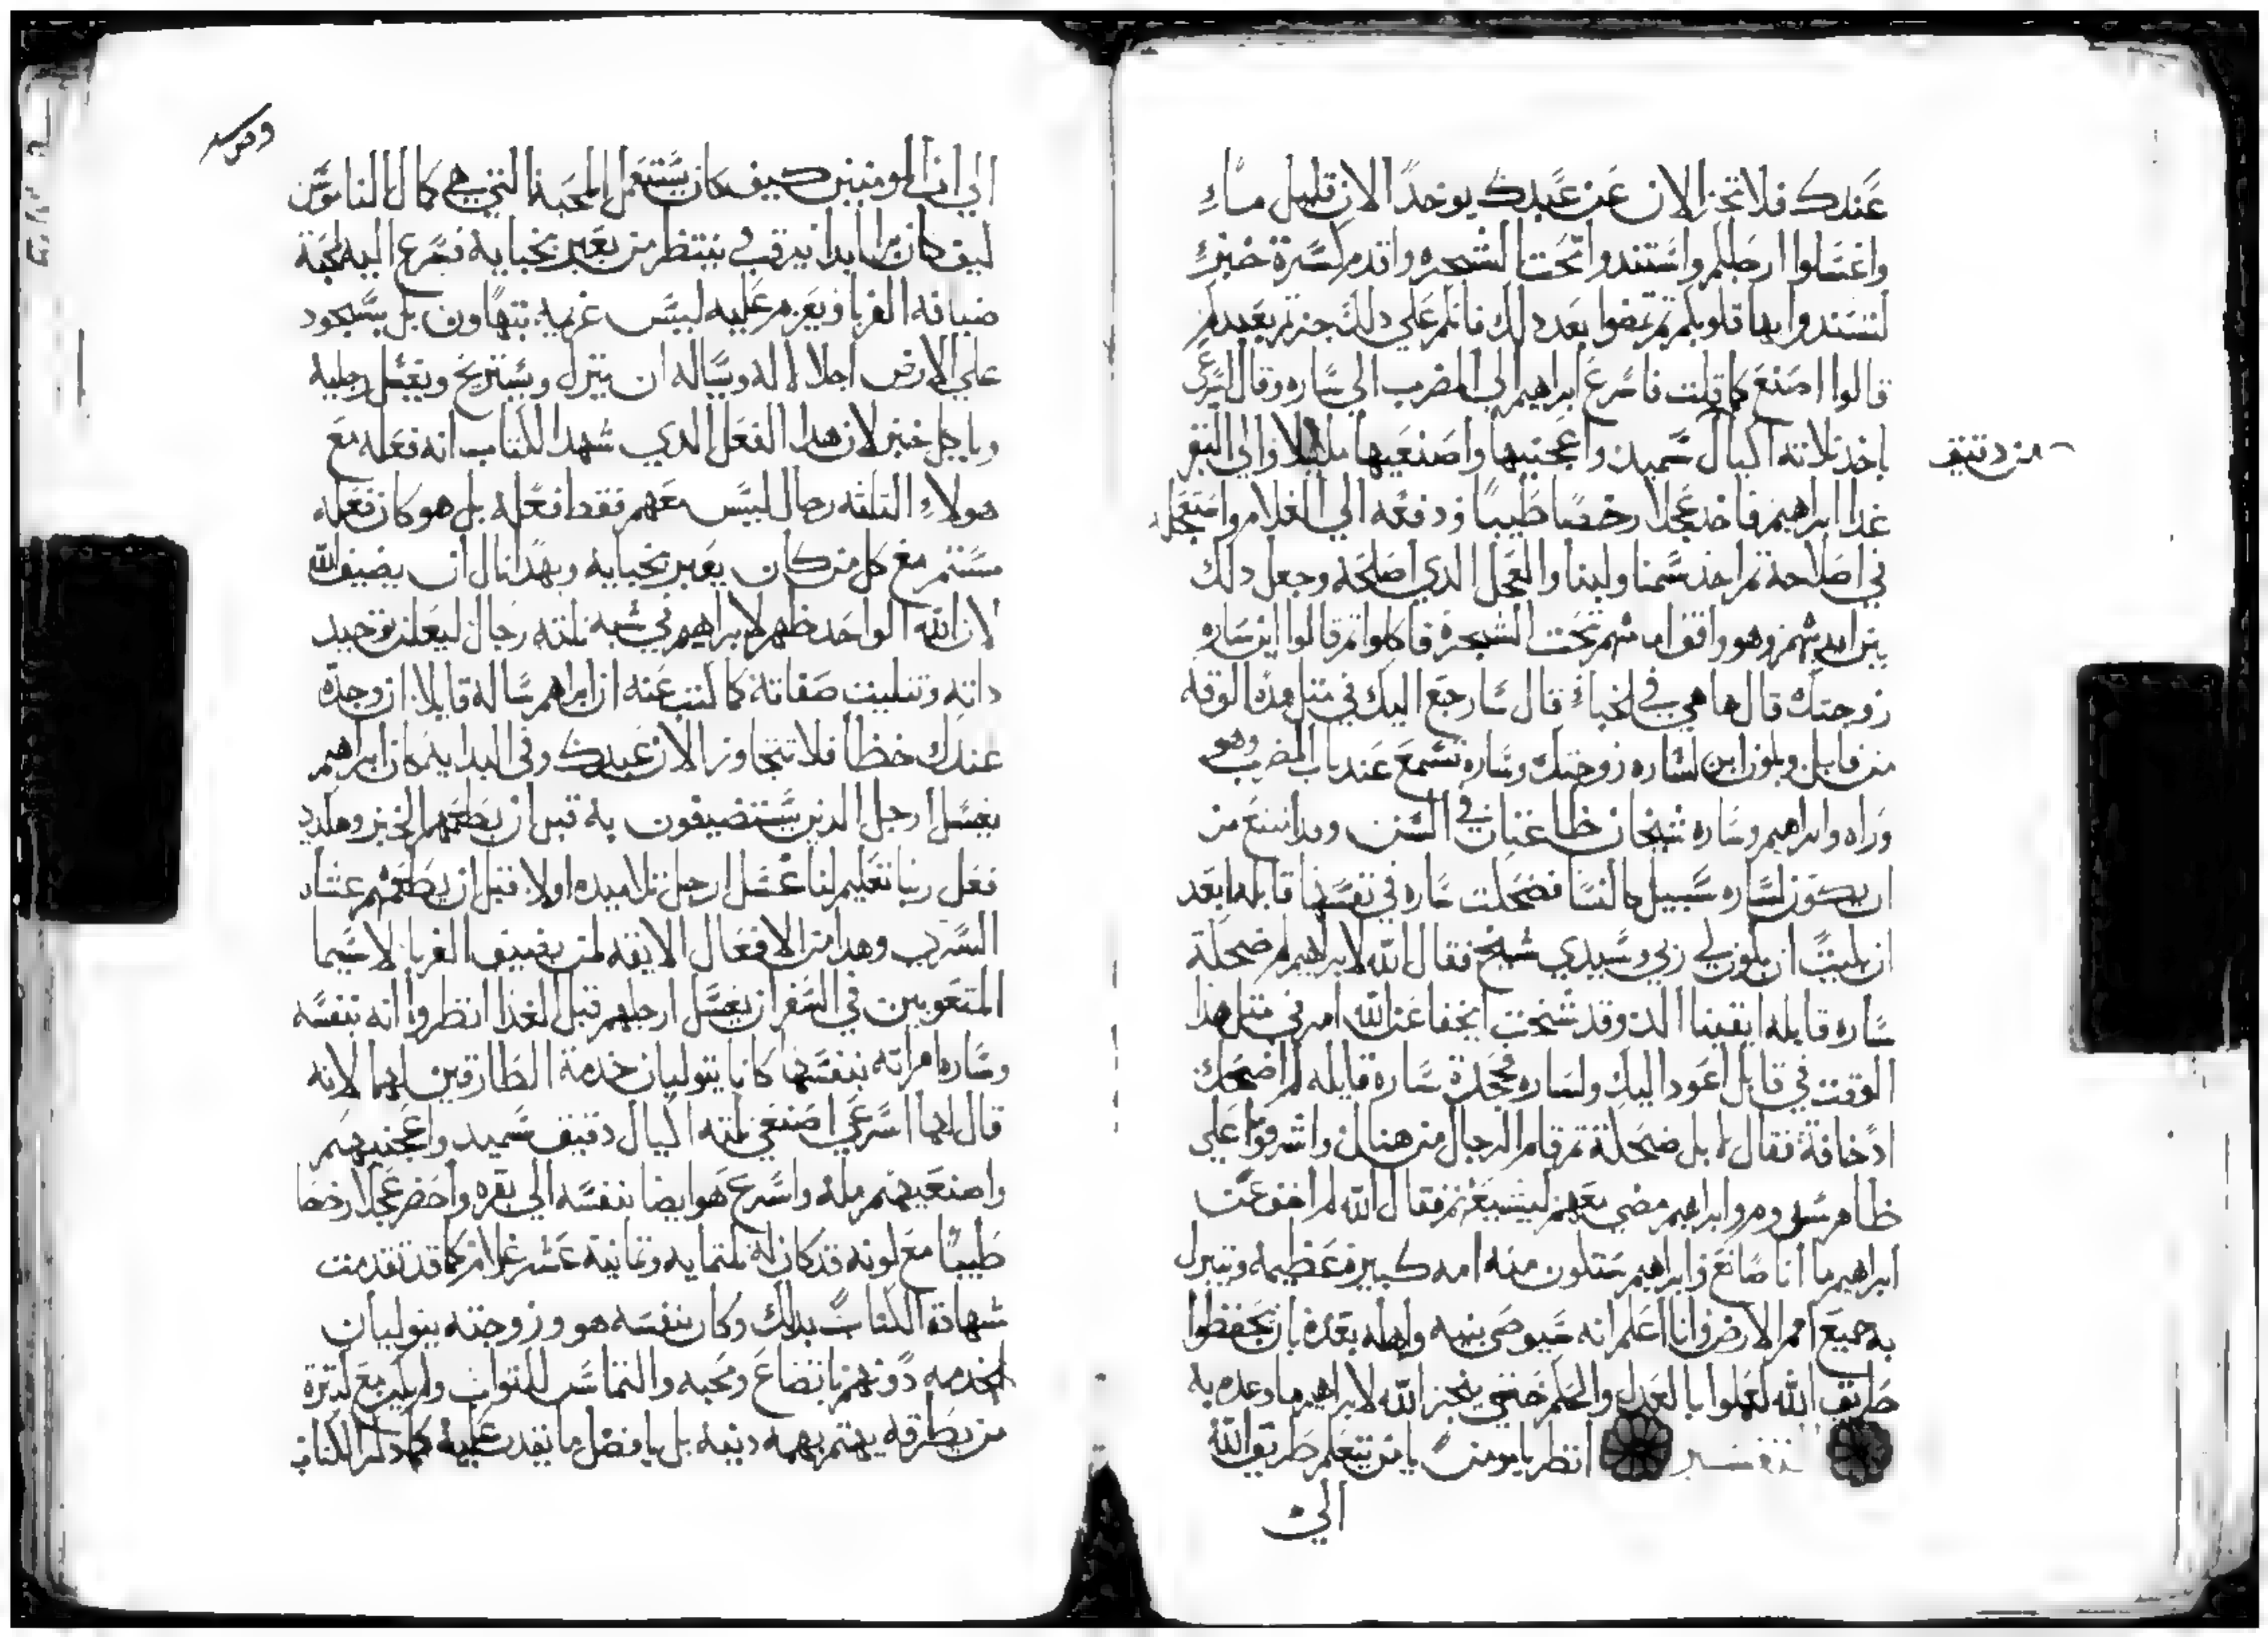 عندك فلا تجز الان عن عبدك يوخد الان قليل ماء
واغسلوا ارجلكم واستندوا تحت الشجره واقدم كسرة خبز
لتسندوا بها قلوبكم ثم تمضوا بعد دلك فانكم علي دلك جزتم بعبدكم
قالوا اصنع كما قلت فاسرع ابراهيم الي المضرب الي ساره وقال اسرعي
باخذ ثلاثة اكيال سميد واعجنيها واصنعيها مليلا والي البقر
من دقيق
غدا ابراهيم فاخد عجلا رخصا طيبا ودفعه الي الغلام واستعجله
في اصلاحه ثم اخذ سمنا ولبنا والعجل الدي اصلحه وجعل دلك
بين ايديهم وهو واقف امامهم تحت الشجرة فاكلوا ثم قالوا اين ساره
زوجتك قال ها هي في الخباء قال سارجع اليك في مثل هذه الوقته
من قابل ويكون ابن لساره زوجتك وساره تسمع عند باب المضرب وهو
وراه وابراهيم وساره شيخان طاعنان في السن وقد امتنع من
ان يكون لساره سبيل كالنسا فضحكت ساره في نفسها قايله ابعد
ان بليت ان يكون لي زبي وسيدي شيخ فقال الله لابراهيم لم ضحكة
ساره قايله ايقينا الد وقد شخت ايخفا عن الله امر في مثل هذا
الوقت في قابل اعود اليك ولساره فجحدة سارة قايله لم اضحك
اد خافة فقال لا بل ضحكة ثم قام الرجال من هناك واشرفوا علي
ظاهر سدوم وابراهيم مضي معهم ليشيعهم فقال الله لم اخف عن
ابراهيم ما انا صانع وابراهيم ستكون منه امه كبيرة عظيمه وتتبرك
به جميع امم الارض وانا اعلم انه سيوصي بنيه واهله بعده بان يحفظوا
طريق الله ليعملوا بالعدل والحكم حتي ينجز الله لابراهيم ما وعده به
تفسير انظر يا مومن يا من يتعلم طريق الله
الي
الي اب المومنين كيف كان يستعمل المحبة التي هي كمال الناموس
كيف كان برا بدا يترقب ينتظر من يعبر بخبايه فسرع اليه لمحبة
ضيافة الغربا ويعزم عليه ليس عزيمه بتهاون بل بسجود
علي الارض اجلالا له وساله ان ينزل ويستريح ويغسل رجليه
وياكل خبز لان هدا الفعل الدي شهد الكتاب انه فعله مع
هولاء التلته رجال ليس معهم فقط فعله بل هو كان فعله
مستمر مع كل من كان يعبر بخبايه وبهدا نال ان يضيف الله
لان الله الواحد ظهر لابراهيم في شبه تلته رجال ليعلن توحيد
داته وتتليت صفاته كما كتب عنه ان ابراهم ساله قايلا ان وجدة
عندك حظا فلا تتجاوز الان عبدك وفي البدايه كان ابراهيم
يغسل ارجل الدين يستضيفون به قبل ان يطعمهم الخبز وهكدي
فعل ربنا تعليم لنا غسل ارجل تلاميده اولا قبل ان يطعمهم عشاه
السري وهدا من الافعال الايقه لمن يضيف الغربا لاسيما
المتعوبين في السفر ان يغسل ارجلهم قبل الغدا انظروا انه بنفسه
وساره امراته بنفسها كانا يتوليان خدمة الطارقين لهما لانه
قال لها اسرعي اصنعي تلته اكيال دقيق سميد واعجنيهم
واصنعيهم مله واسرع هو ايضا بنفسه الي بقره واحضر عجلا رخصا
طيبا مع كونه قد كان له تلتمايه وتمانيه عشر غلام كما قد تقدمت
شهادة الكتاب بدلك وكان بنفسه هو وزوجته يتوليان
الخدمه دونهم باتضاع ومحبه والتماس للتواب ولم يكن مع كترة
من يطرقه يهتم بهمه دنيه بل بافضل ما يقدر عليه كما دكر الكتاب